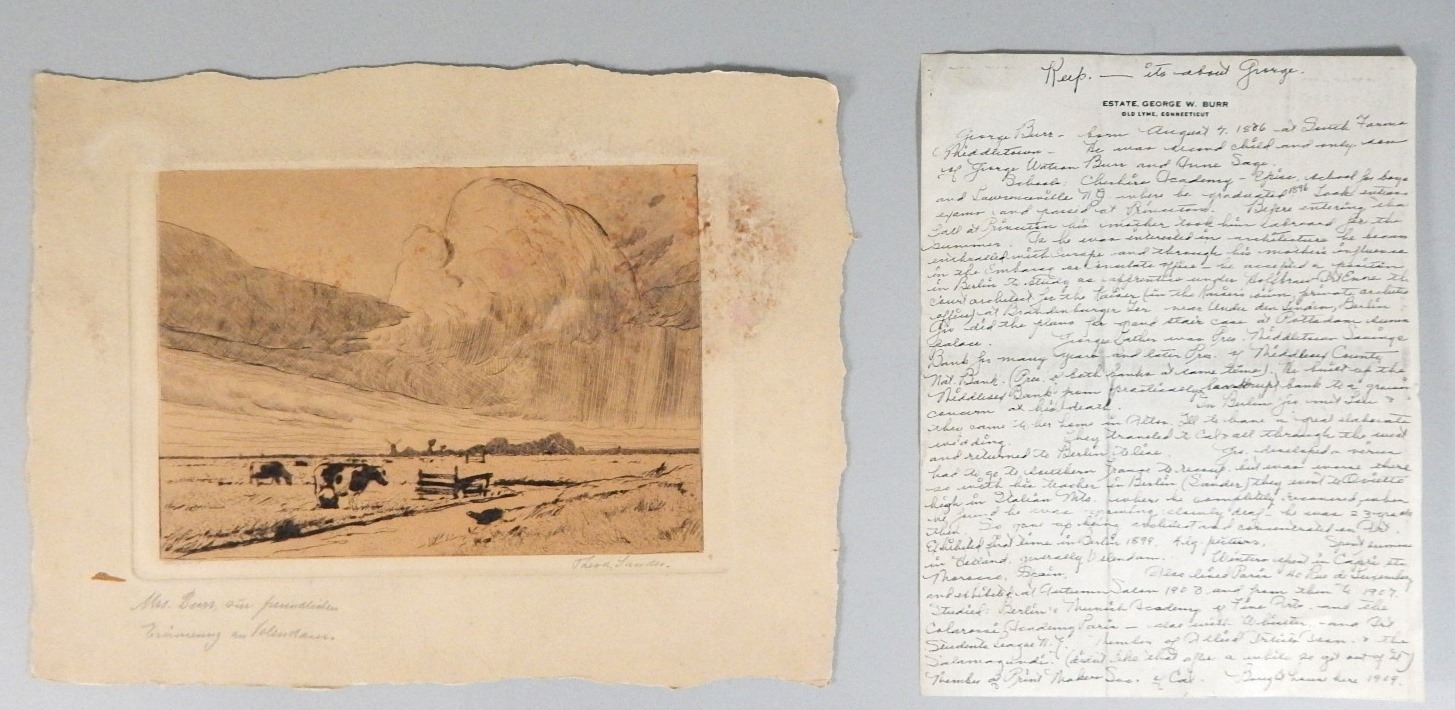 Theod. Sander.
Mrs. Burr, zur freundlichen
Erinnerung an Volendam.
Keep. — its about George.
ESTATE, GEORGE W. BURR
OLD LYME, CONNECTICUT
George Burr - born August 9, 1876 - at South Farms
Middletown - He was second child and only son
of George Watson Burr and Anne Sage.
Schools: Cheshire Academy - school for boys
and Lawrenceville N.J. where he graduated 1896 Took entrance
exams and passed at Princeton. Before entering the
fall at Princeton his mother took him abroad for the
summer. As he was interested in architecture he became
with Europe and through his mother's influence
in the Embassy or consulate office - he accepted a position
in Berlin to study as apprentice under the
Court architect for the Kaiser (in the Kaiser's own private
office) at Brandenburger Tor near Unter den Linden, Berlin.
Geo did the plans for grand stair case at Pottsdam
Palace. George's father was Pres. Middletown Savings
Bank for many years and later Pres. of Middlesex County
Nat. Bank. (Pres. of both banks at same time). He built up the
Middlesex Bank from practically bankrupt bank to a going
concern at his death. In Berlin Geo met &
they came to her home in Alton, Ill to have a great elaborate
wedding. They traveled to Cal & all through the west
and returned to Berlin to live. Geo. developed a
had to go to Southern to recoup, but was worse there
so with his teacher in Berlin (Sander) they went to
high in Italian Mts. where he completely recovered, when
we found he was growing slowly deaf he was
then. So gave up being architect and concentrated on Art.
Exhibited first time in Berlin 1899, pictures. Spent summers
in Holland, generally Volendam. Winters spent in Capri etc
Morocco, Spain. Also lived Paris Rue de Luxemburg
and exhibited at Autumn Salon 1903 and from then to 1907.
Studied: Berlin & Munich Academy of Fine Arts, and the
Colarossi Academy Paris - also with Whistler - and Art
Students League N.Y. Member of Allied Artists Assn. & the
Salamagundi. (didn't like that after a while so got out of it)
Member of Print Makers Soc. of Cal. Bought house here 1909.